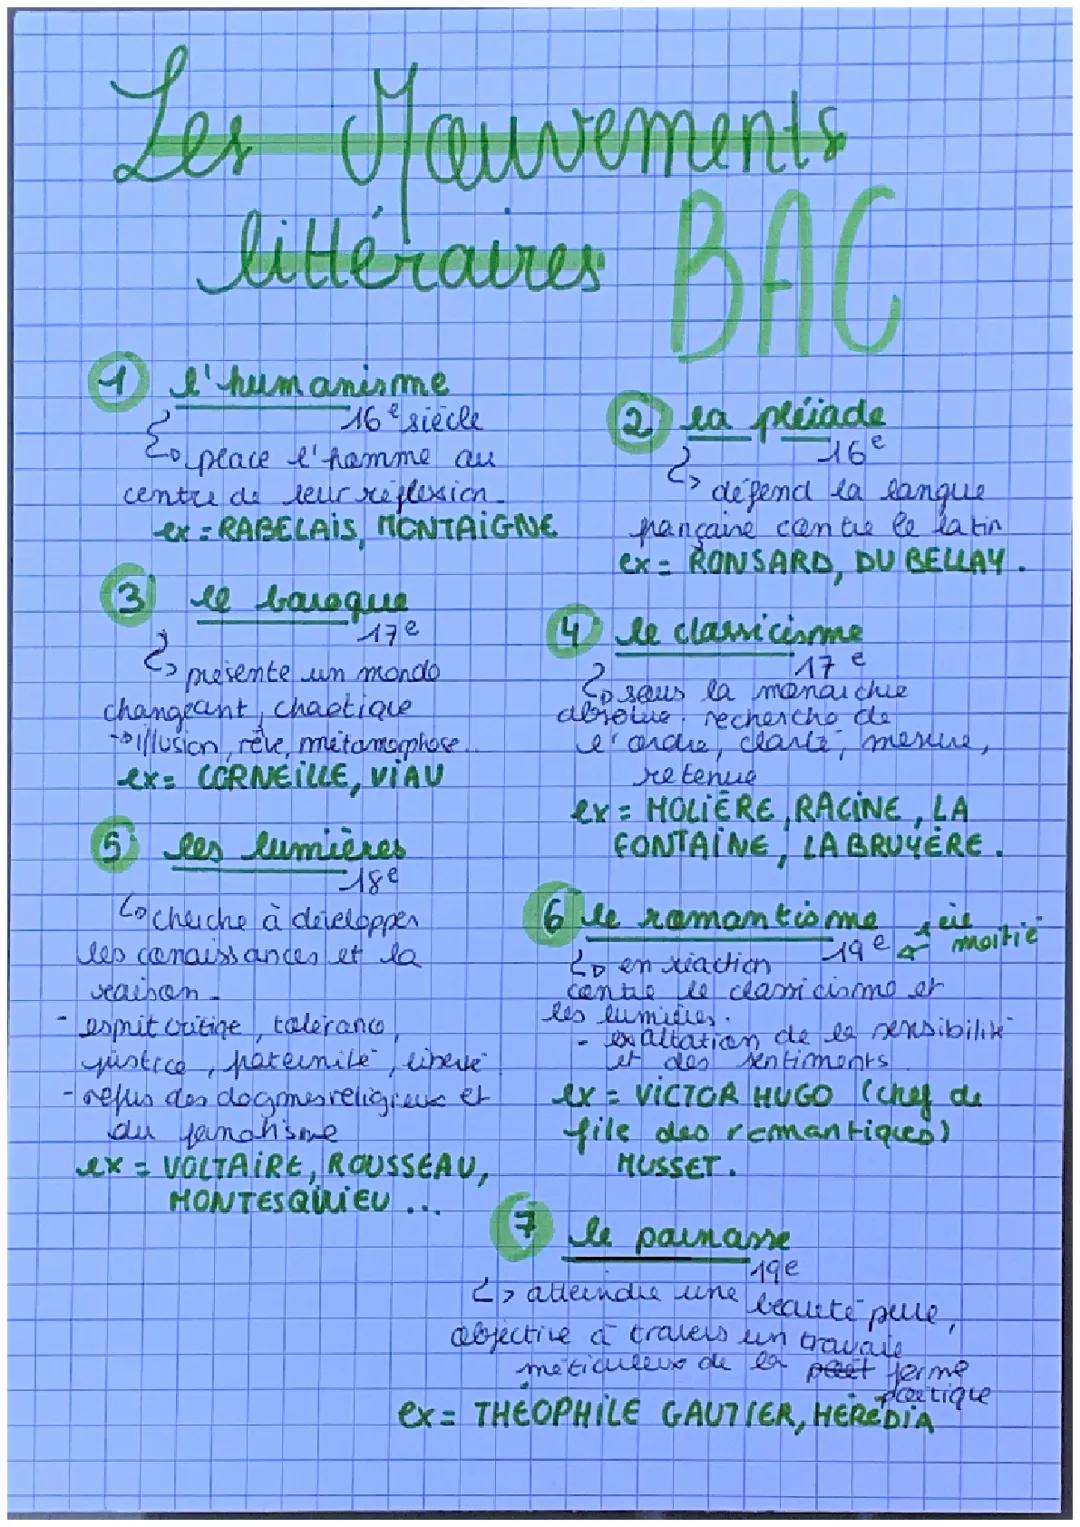 Les Mouvements
littéraires BAC
1 l'humanisme
16e siècle
place l'homme au
centre de leur réflexion.
ex = RABELAIS, MONTAIGNE
2 la pléiade
16e
défend la langue
française contre le latin
ex = RONSARD, DU BELLAY.
3 le baroque
17e
présente un monde
changeant, chaotique
illusion, rêve, métamorphose...
ex = CORNEILLE, VIAU
4 le classicisme
17e
sous la monarchie
absolue. recherche de
l'ordre, clarté, mesure,
retenue
ex = MOLIÈRE, RACINE, LA
FONTAINE, LA BRUYÈRE.
5 les lumières
18e
cherche à développer
les conaissances et la
raison.
- esprit critique, tolérance,
justice, fraternité, liberté
- refus des dogmes religieux et
du fanatisme
ex = VOLTAIRE, ROUSSEAU,
MONTESQUIEU ...
6 le romantisme
19e 1ère moitié
en réaction
contre le classicisme et
les lumières.
- exaltation de la sensibilité
et des sentiments
ex = VICTOR HUGO (chef de
file des romantiques)
MUSSET.
7 le parnasse
19e
atteindre une beauté pure,
objective à travers un travail
méticuleux de la poét forme
poétique
ex = THÉOPHILE GAUTIER, HÉRÉDIA